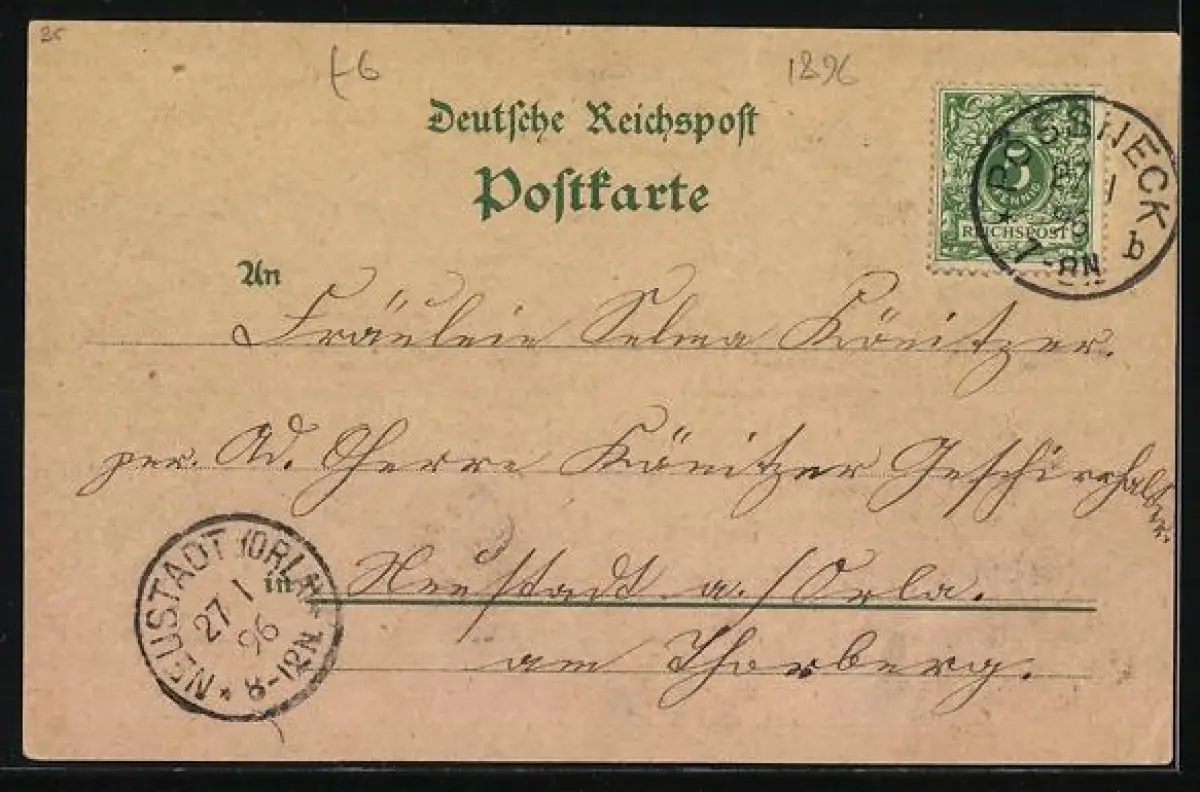 86
1896
Deutsche Reichspost
Postkarte
5
PFENNIG
REICHSPOST
PÖSSNECK
27 1
96
7-8N b
An
Fräulein Selma Könitzer.
per. Ad. Herrn Könitzer Geschirrhalter.
in Neustadt a./Orla.
am Thorberg.
NEUSTADT (ORLA)
27 1
96
8-12N.